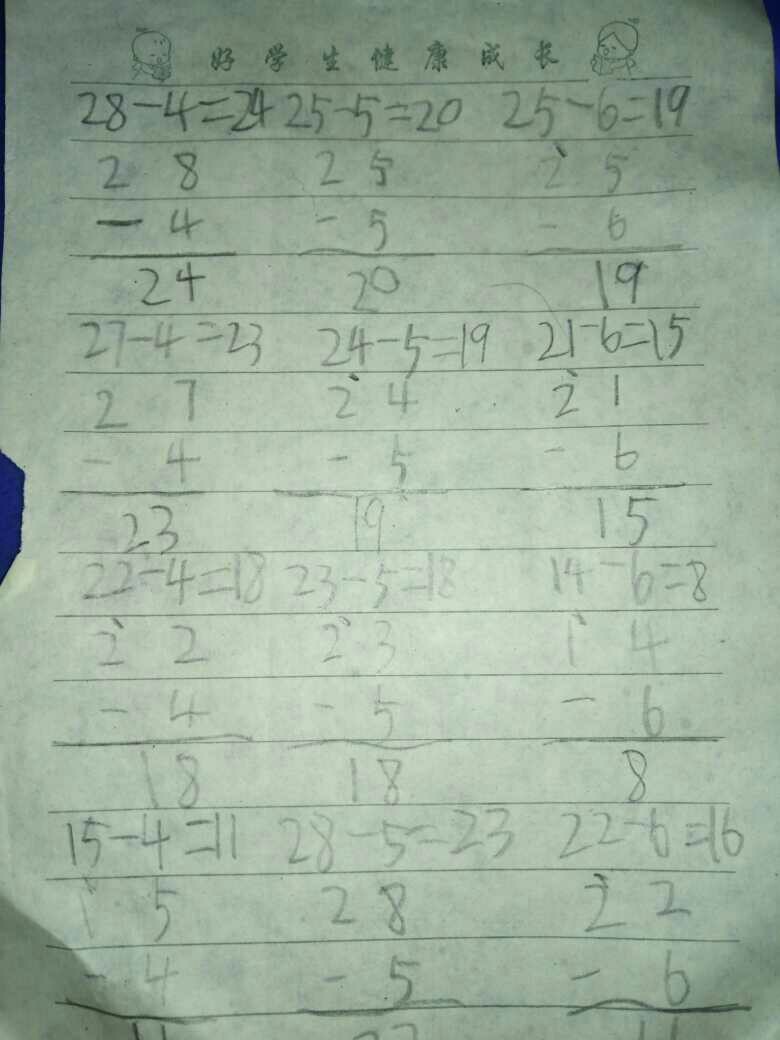 好学生健康成长
28-4=24 25-5=20 25-6=19
2 8 2 5 2 5
- 4 - 5 - 6
24 20 19
27-4=23 24-5=19 21-6=15
2 7 2 4 2 1
- 4 - 5 - 6
23 19 15
22-4=18 23-5=18 14-6=8
2 2 2 3 1 4
- 4 - 5 - 6
18 18 8
15-4=11 28-5=23 22-6=16
1 5 2 8 2 2
- 4 - 5 - 6